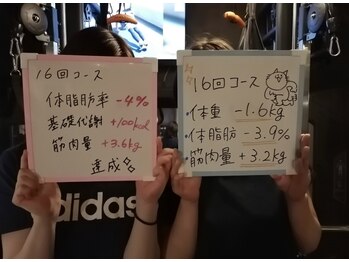 16回コース
体脂肪率 -4%
基礎代謝 +100kcal
筋肉量 +3.6kg
達成
adidas
16回コース
・体重 -1.6kg
・体脂肪 -3.9%
・筋肉量 +3.2kg